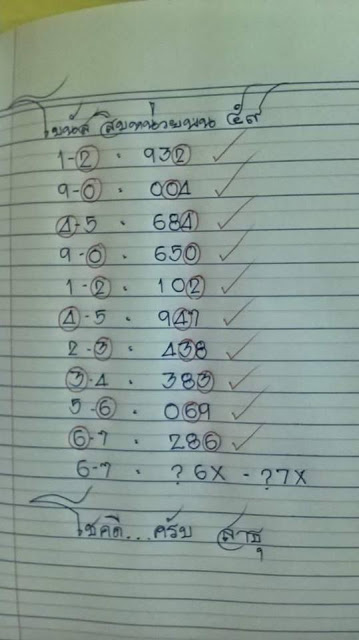 โบนัส สิบหน่วยบน ๕๙
1-2 • 932 ✓
9-0 • 004 ✓
4-5 • 684 ✓
9-0 • 650 ✓
1-2 • 102 ✓
4-5 • 947 ✓
2-3 • 438 ✓
3-4 • 383 ✓
5-6 • 069 ✓
6-7 • 286 ✓
6-7 • ?6X - ?7X
โชคดี...ครับ สาธุ